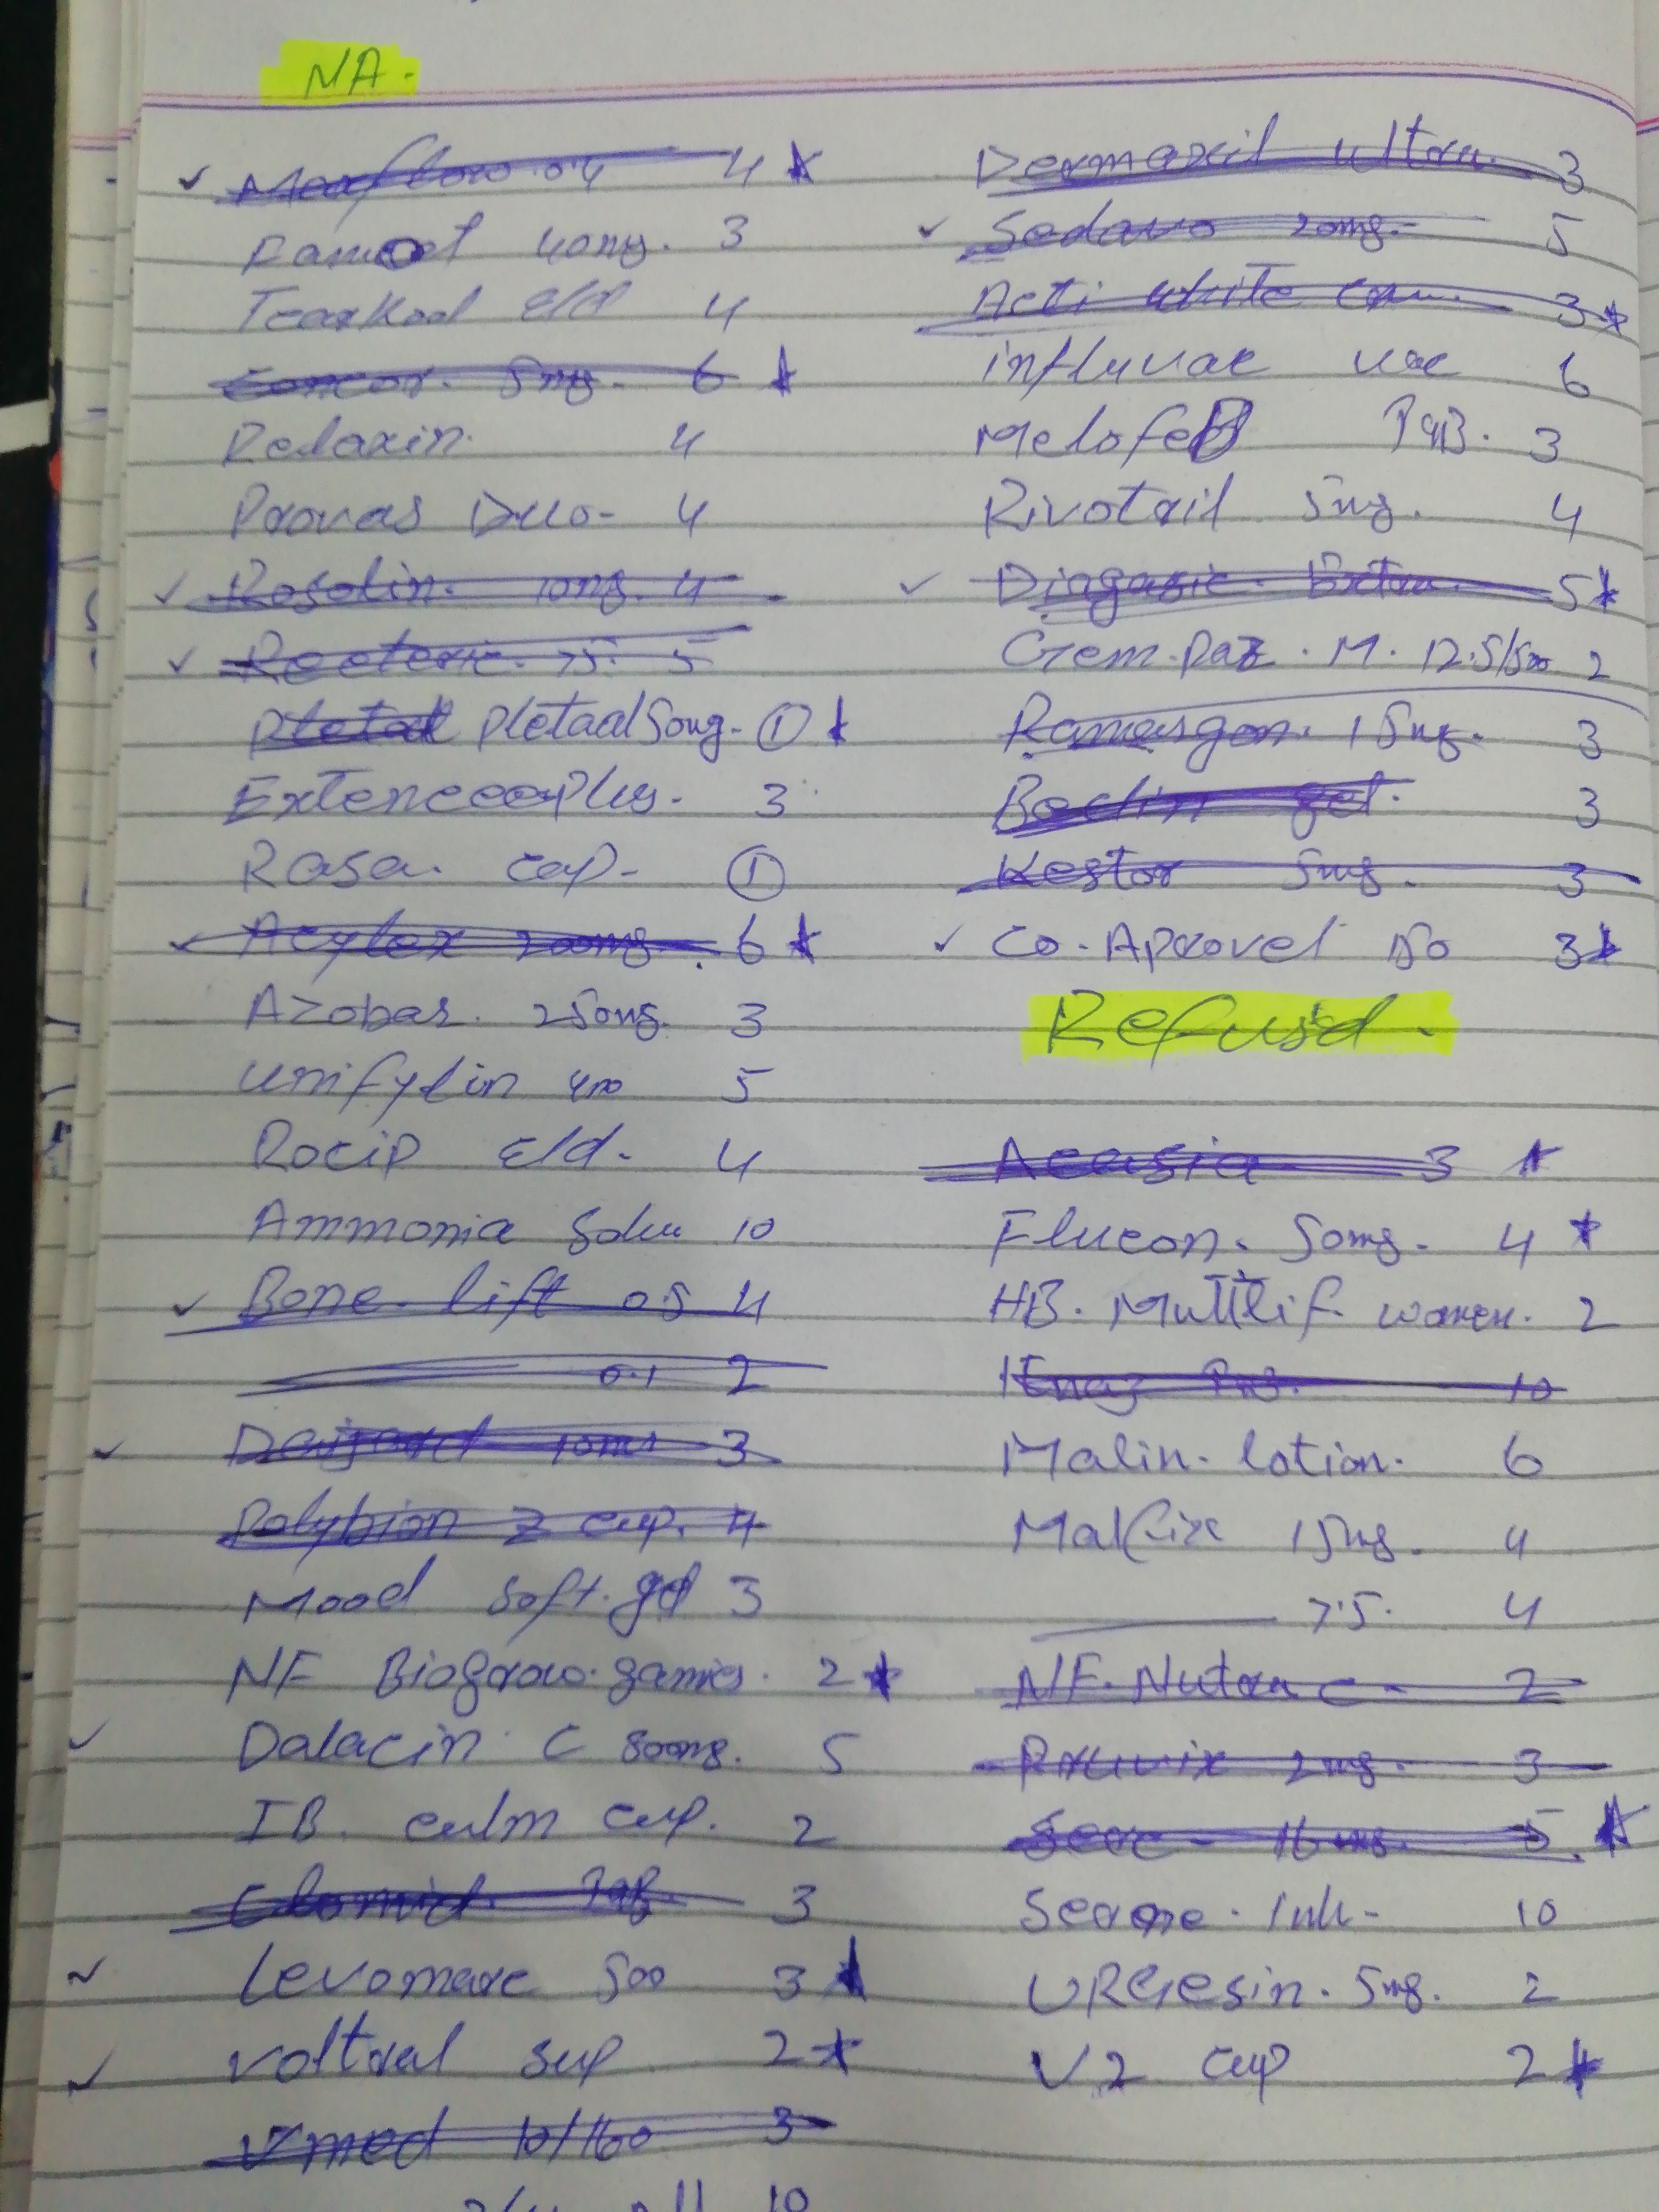 NA.
Maxflow 0.4 4
Famot 40mg. 3
Tearkool E/d 4
Concor. 5mg. 6
Relaxin. 4
Provas Duo- 4
Rosolin. 10mg. 4
75. 5
Pletaal 50mg. 1
Plus. 3
Rasa. cap- 1
Acylex 200mg. 6
Azobar. 250mg. 3
unifylin 400 5
Rocip E/d. 4
Ammonia Solu 10
Bone-lift 0.5 4
0.1 2
10mg 3
Polybion Z cap. 4
Mood soft.gel 3
NF Biogrow. 2
Dalacin C 300mg. 5
IB. calm cap. 2
Clomid. Tab. 3
Levomerc 500 3
voltral sup 2
Vmed 10/160 3
10
Dermaxil ultra. 3
20mg. 5
Acti white 3
influvac vac 6
Melofeb Tab. 3
Rivotril 5mg. 4
Extra. 5
Gem.Paz. M. 12.5/500 2
15mg. 3
gel. 3
Kestor 5mg. 3
Co-Aprovel 150 3
Refusd.
Acasia 3
Flucon. 50mg. 4
HB. women. 2
10
Malin. lotion. 6
15mg. 4
7.5. 4
NF. Nutra C- 2
2mg. 3
Serc- 16mg. 5
Inh- 10
URGesin. 5mg. 2
V2 cap 2